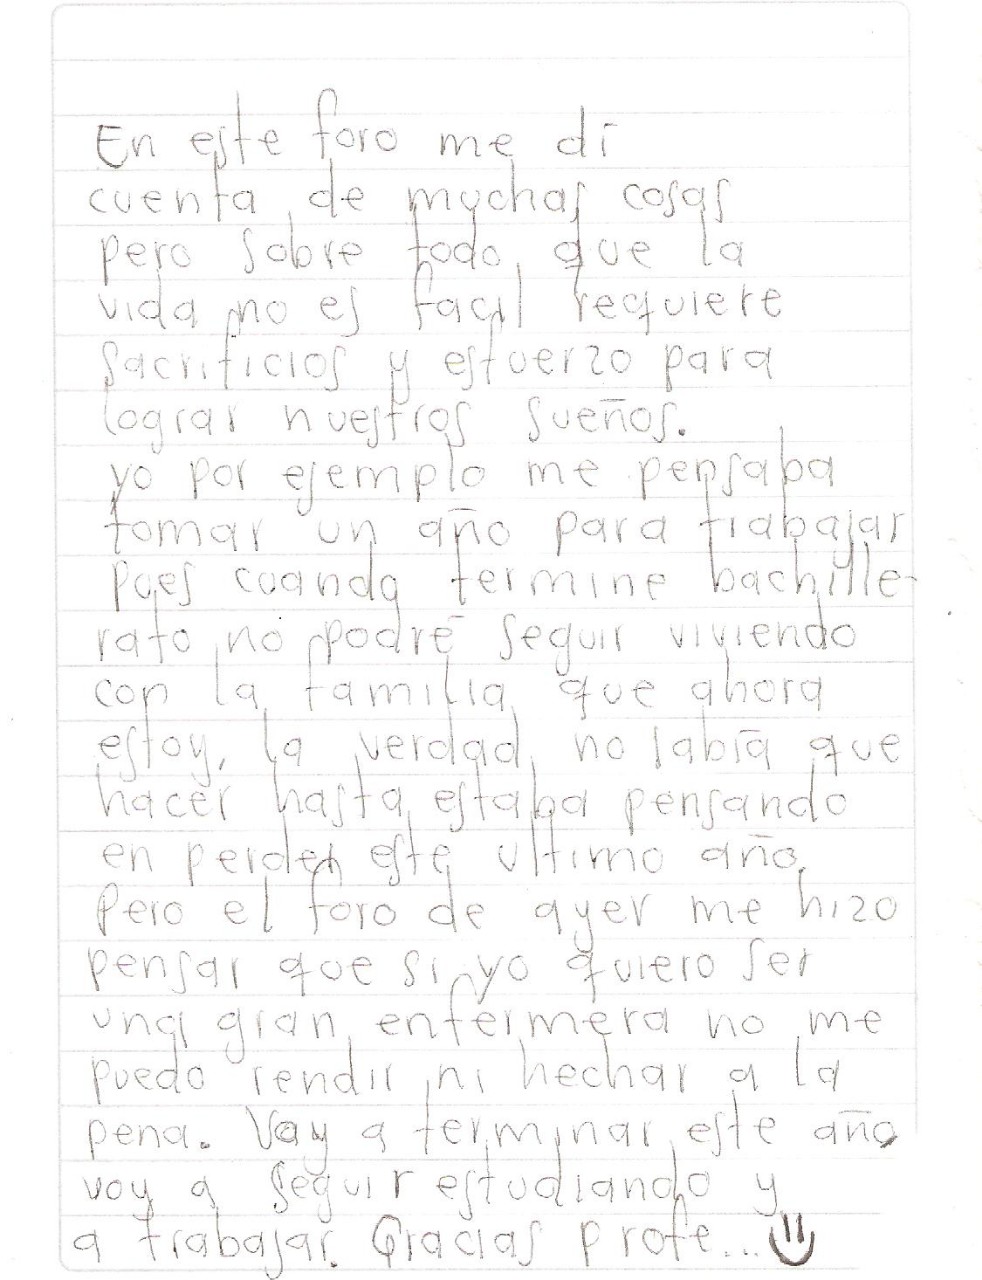 En este foro me dí
cuenta de muchas cosas
pero sobre todo que la
vida no es facil requiere
sacrificios y esfuerzo para
lograr nuestros sueños.
yo por ejemplo me pensaba
tomar un año para trabajar
pues cuando termine bachille-
rato no podré seguir viviendo
con la familia que ahora
estoy, la verdad no sabía que
hacer hasta estaba pensando
en perder este ultimo año.
Pero el foro de ayer me hizo
pensar que si yo quiero ser
una gran enfermera no me
puedo rendir ni hechar a la
pena. Voy a terminar este año
voy a seguir estudiando y
a trabajar. Gracias profe...